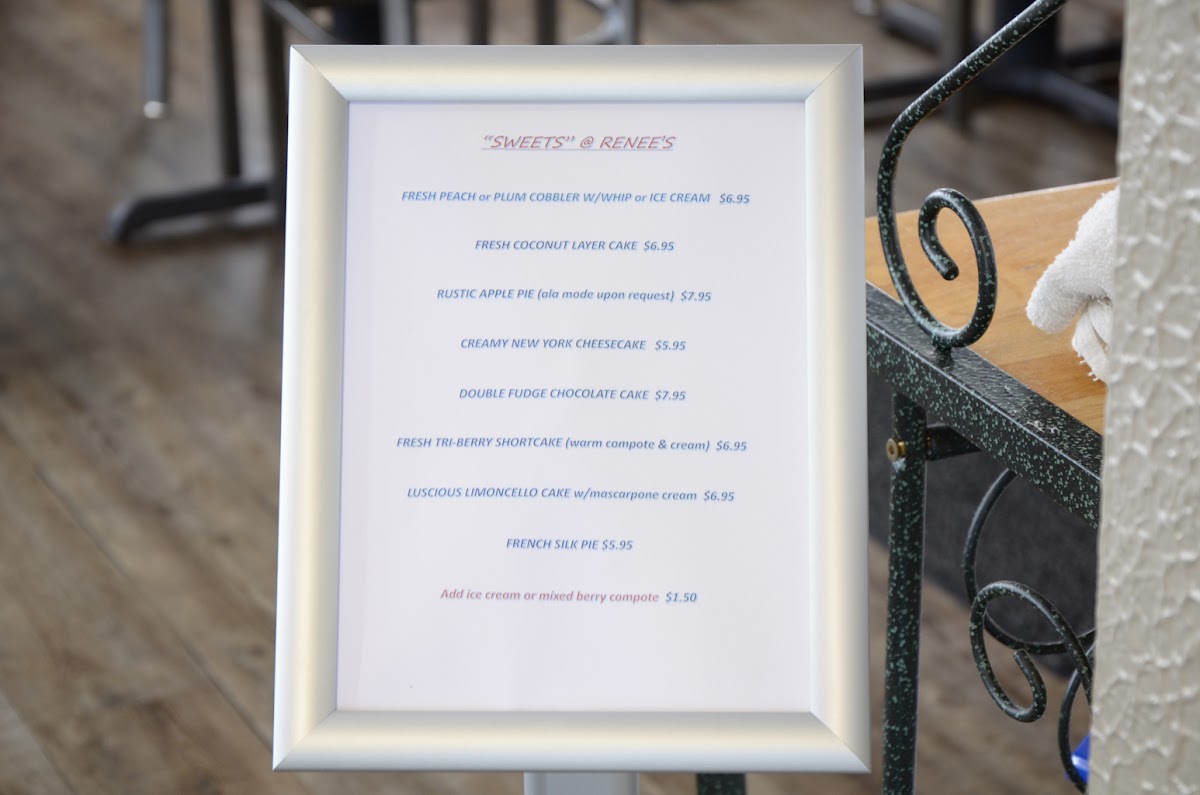 “SWEETS” @ RENEE’S
FRESH PEACH or PLUM COBBLER W/WHIP or ICE CREAM $6.95
FRESH COCONUT LAYER CAKE $6.95
RUSTIC APPLE PIE (ala mode upon request) $7.95
CREAMY NEW YORK CHEESECAKE $5.95
DOUBLE FUDGE CHOCOLATE CAKE $7.95
FRESH TRI-BERRY SHORTCAKE (warm compote & cream) $6.95
LUSCIOUS LIMONCELLO CAKE w/mascarpone cream $6.95
FRENCH SILK PIE $5.95
Add ice cream or mixed berry compote $1.50